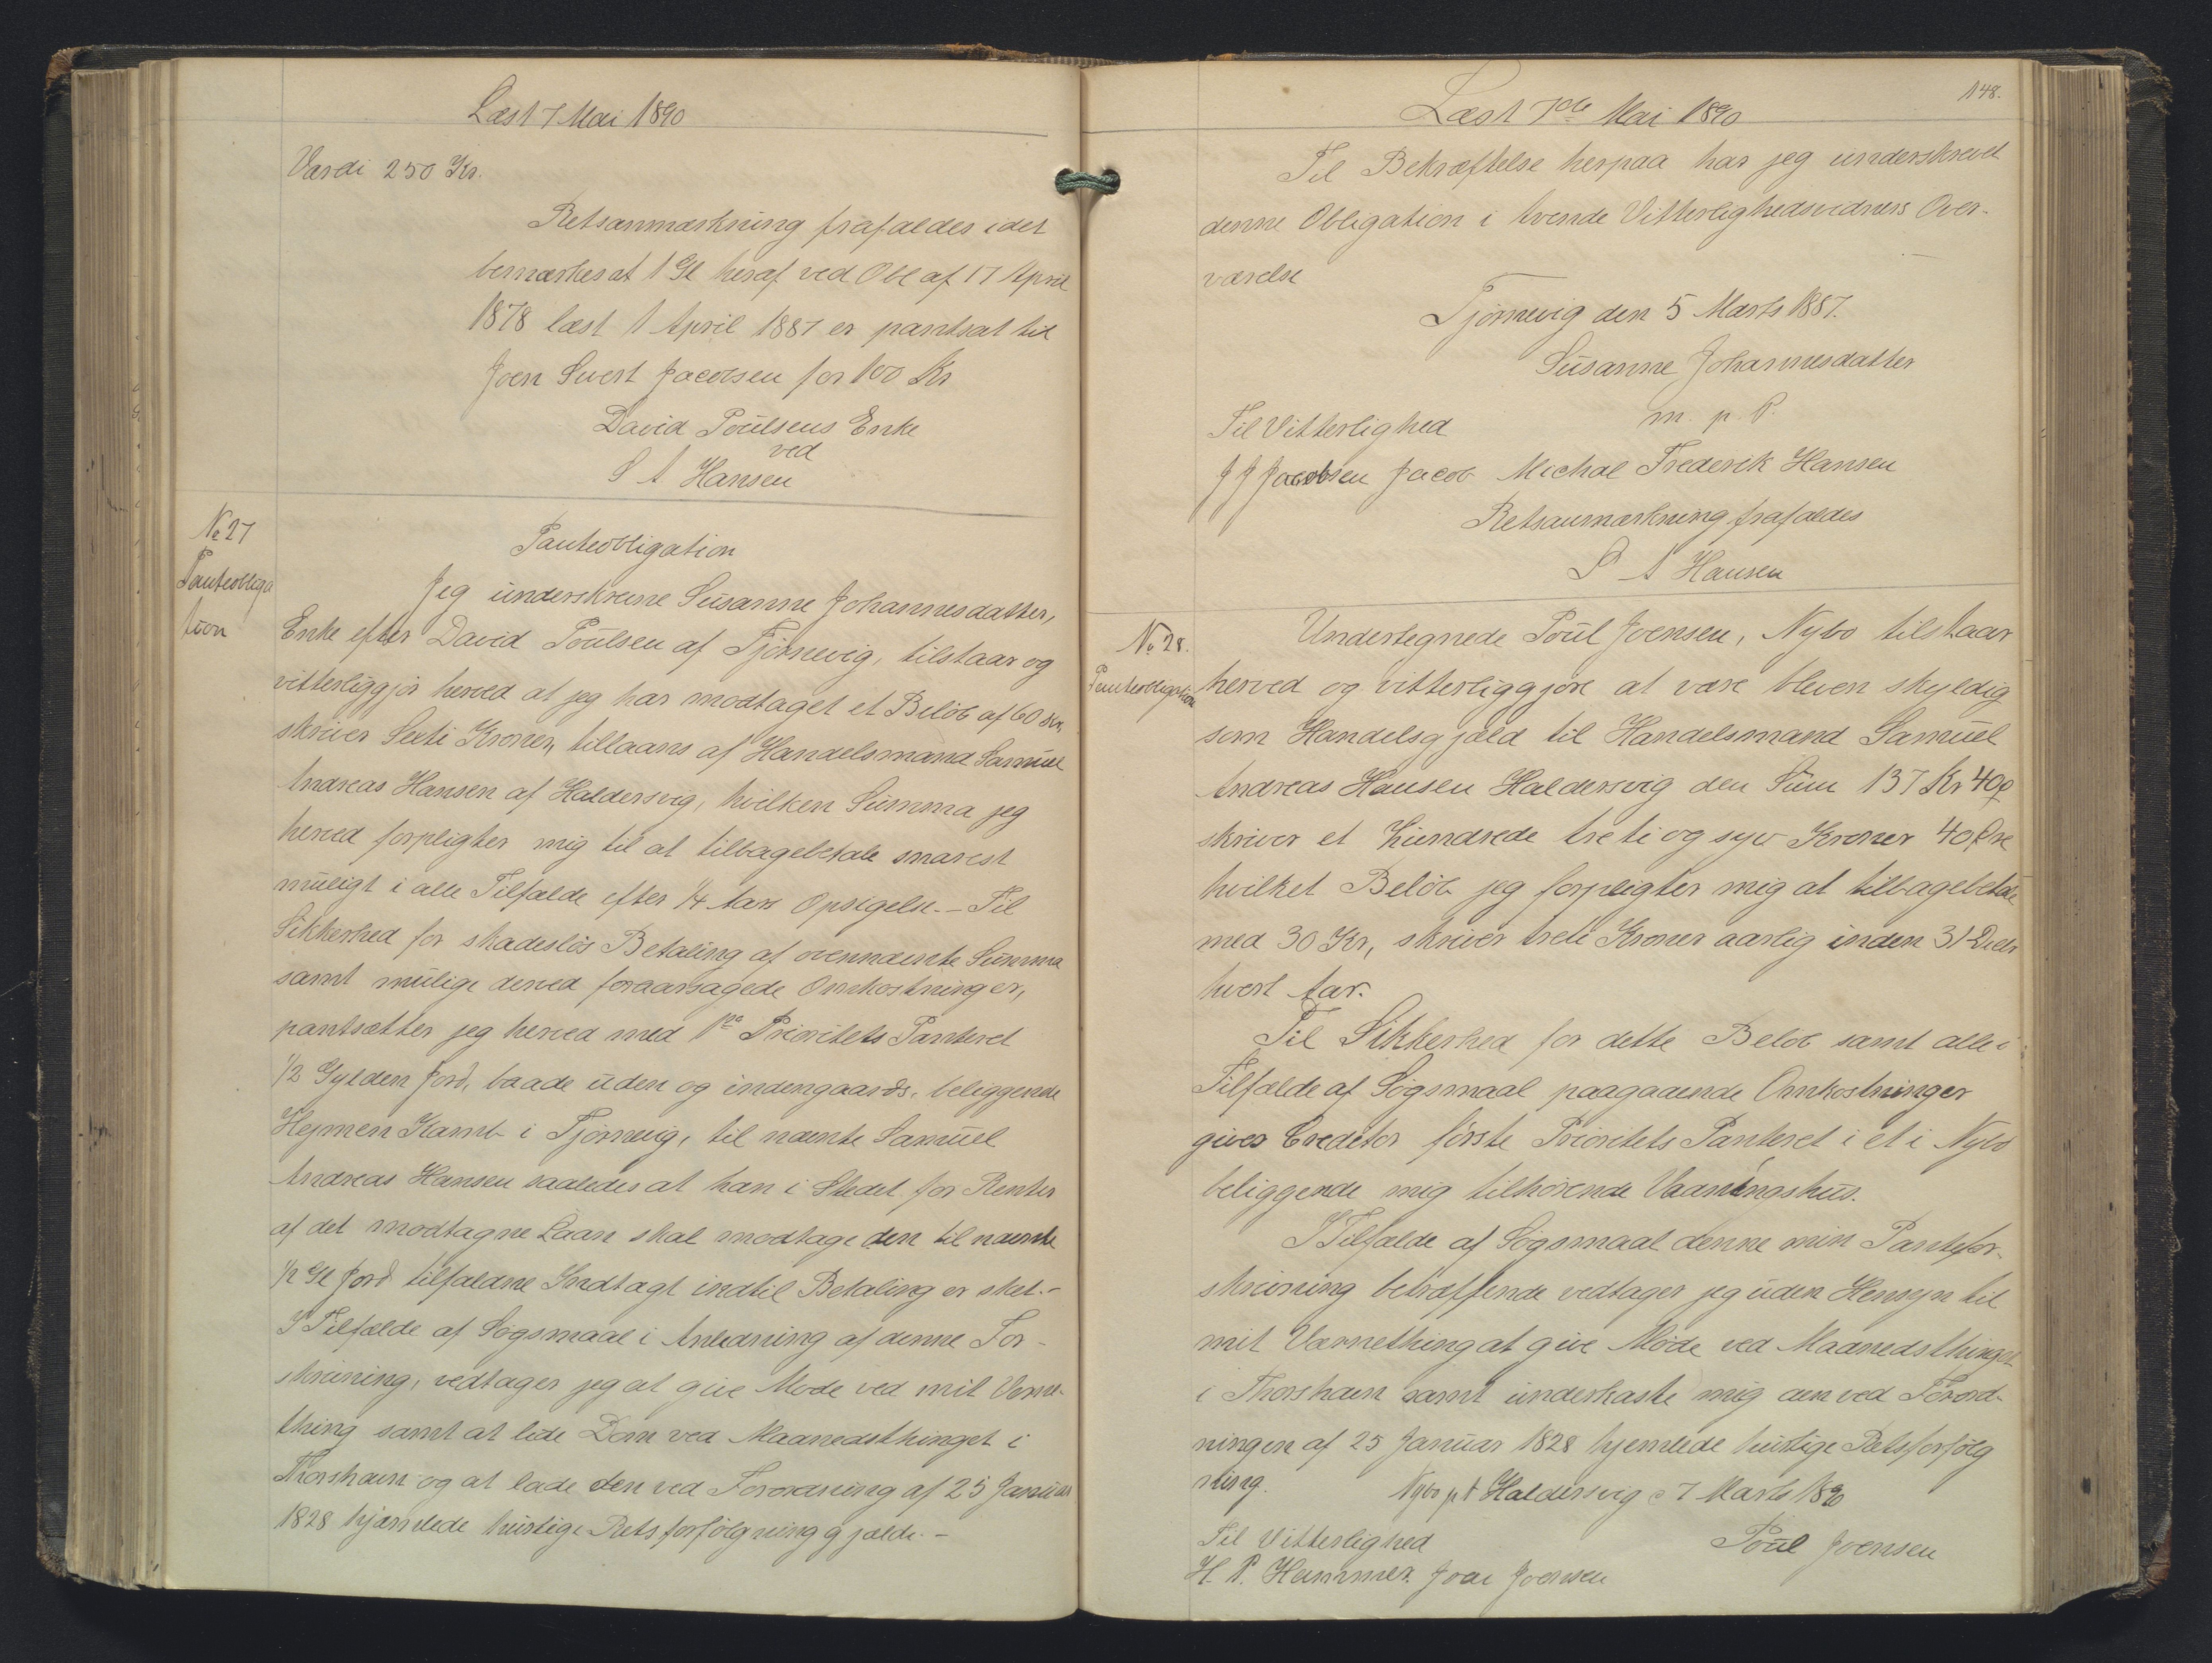 Læst 7 Mai 1890
Værdi 250 Kr.
Retsanmærkning frafaldes idet
bemærkes at 1 Gl heraf ved Obl af 17 April
1878 læst 1 April 1887 er pantsat til
Joen Sivert Jacobsen for 100 Kr
David Poulsens Enke
ved
S A Hansen
No 27
Panteobliga
tion
Panteobligation
Jeg underskrevne Susanne Johannesdatter,
Enke efter David Poulsen af Tjørnevig, tilstaar og
vitterliggjør herved at jeg har modtaget et Beløb af 60 Kr,
skriver Sexti Kroner, tillaans af Handelsmand Samuel
Andreas Hansen af Haldersvig, hvilken Summa jeg
herved forpligter mig til at tilbagebetale snarest
muligt i alle Tilfælde efter 1/4 Aars Opsigelse. – Til
Sikkerhed for skadesløs Betaling af ovennævnte Summa
samt mulige derved foraarsagede Omkostninger,
pantsætter jeg herved med 1ste Prioritets Panteret
1/2 Gylden Jord, baade uden og indengaards, beliggende
Hejmen Kamb i Tjørnevig, til nævnte Samuel
Andreas Hansen saaledes at han i Stedet for Renter
af det modtagne Laan skal modtage den til nævnte
1/2 Gl Jord tilfaldne Indtægt indtil Betaling er sket. –
I Tilfælde af Søgsmaal i Anledning af denne For-
skrivning, vedtager jeg at give Møde ved mit Verne-
thing samt at lide Dom ved Maanedsthinget i
Thorshavn og at lade den ved Forordning af 25 Januar
1828 hjemlede hurtige Retsforfølgning gjælde. –
148.
Læst 7de Mai 1890
Til Bekræftelse herpaa har jeg underskrevet
denne Obligation i tvende Vitterlighedsvidners Over-
værelse
Tjørnevig den 5 Marts 1887.
Susanne Johannesdatter
m. p. P.
Til Vitterlighed
J J Jacobsen Jacob Michal Frederik Hansen
Retsanmærkning frafaldes
S A Hansen
No 28.
Panteobligation
Undertegnede Poul Joensen, Nybo tilstaar
herved og vitterliggjøre at være bleven skyldig
som Handelsgjæld til Handelsmand Samuel
Andreas Hansen Haldersvig den Sum 137 Kr 40 Ø
skriver et Hundrede treti og syv Kroner 40 Øre
hvilket Beløb jeg forpligter mig at tilbagebetale
med 30 Kr, skriver treti Kroner aarlig inden 31 Decbr
hvert Aar.
Til Sikkerhed for dette Beløb samt alle i
Tilfælde af Søgsmaal paagaaende Omkostninger
gives Creditor første Prioritets Panteret i et i Nybo
beliggende mig tilhørende Vaaningshus.
I Tilfælde af Søgsmaal denne min Pantefor-
skrivning betræffende vedtager jeg uden Hensyn til
mit Værnething at give Møde ved Maanedsthinget
i Thorshavn samt underkaste mig den ved Forord-
ningen af 25 Januar 1828 hjemlede hurtige Retsforfølg
ning.
Nybo pt Haldersvig d 7 Marts 1890
Til Vitterlighed
Poul Joensen
H. P. Hammer. Joen Joensen